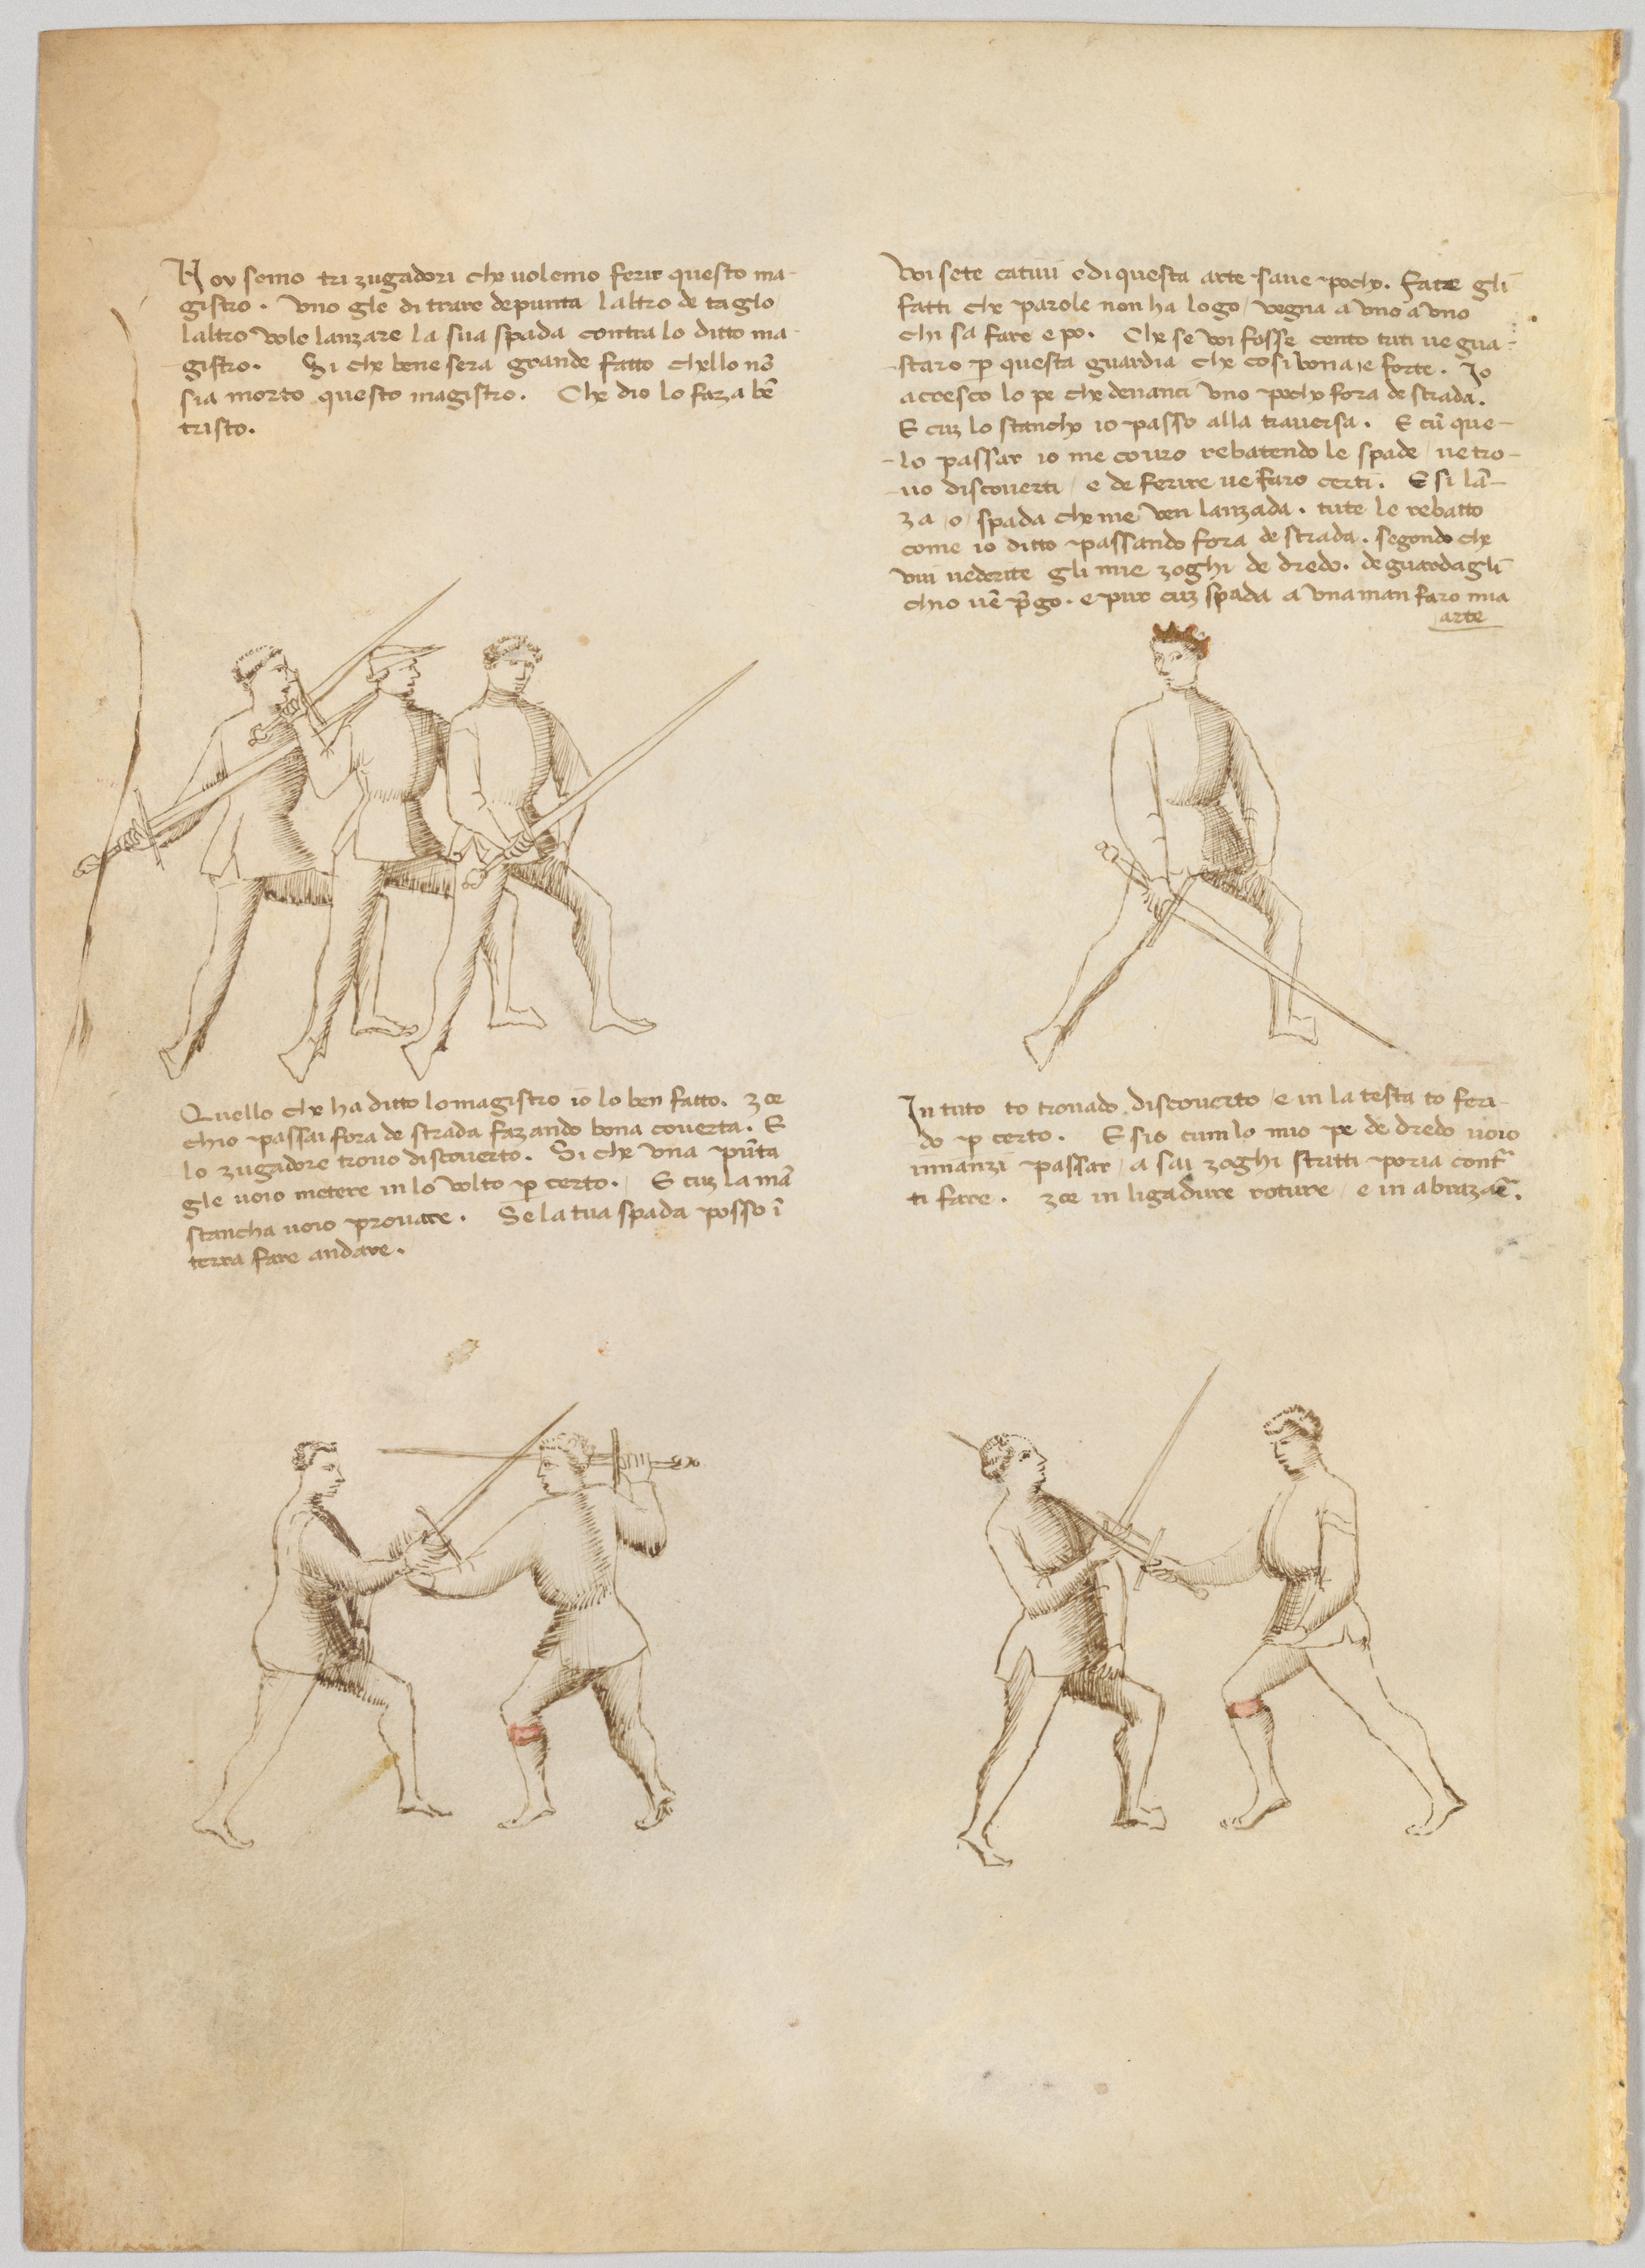 Noy semo tri zugadori che volemo ferir questo ma-
gistro. Uno gle di trare de punta laltro de taglo
laltro vole lanzare la sua spada contra lo ditto ma-
gistro. Si che bene sera grande fatto chello nō
sia morto questo magistro. Che dio lo faza bē
tristo.
Voi sete cativi e di questa arte save pocho. Fate gli
fatti che parole non ha logo / vegna a uno a uno
chi sa fare e po. Che se voi fosse cento tuti ve gua-
staro p questa guardia che cosi bona e forte. Io
acresco lo pe che denanci uno pocho fora de strada.
E cuz lo stancho io passo alla traversa. E cū que-
lo passar io me covro rebatendo le spade / ve tro-
vo discoverti / e de ferire ve faro certi. E si lā-
za / o / spada che me ven lanzada. tute le rebatto
come io ditto passando fora de strada. segondo che
vui vederite gli mie zoghi de dredo. de guardagli
chio vē pgo. e pur cuz spada a una man faro mia
arte
Quello che ha ditto lo magistro io lo ben fatto. zoe
chio passai fora de strada fazando bona coverta. E
lo zugadore trovo discoverto. Si che una pūta
gle voio metere in lo volto p certo. E cuz la mā
stancha voio provare. Se la tua spada posso ī
terra fare andare.
In tuto to trovado discoverto / e in la testa to feri-
do p certo. E sio cum lo mio pe de dredo voio
innanzi passar / asai zoghi stritti poria cont
ti fare. zoe in ligadure roture / e in abrazarē.